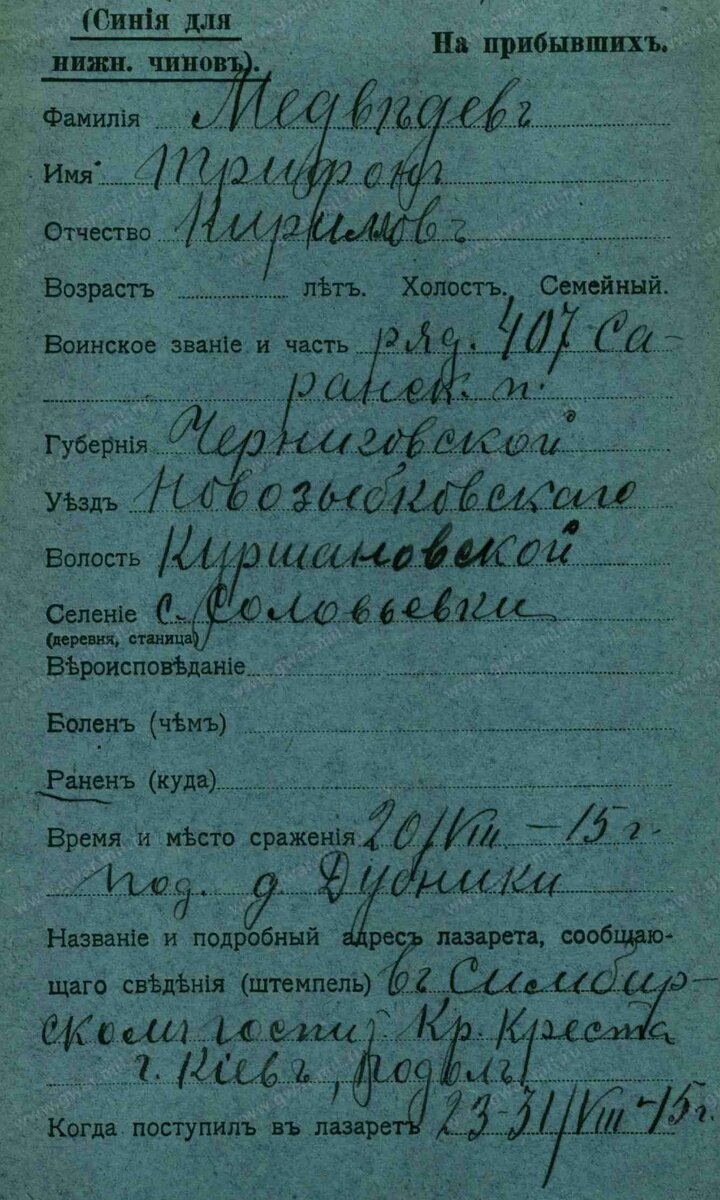 (Синія для
нижн. чиновъ).
На прибывшихъ.
Фамилія Медвѣдевъ
Имя Трифонъ
Отчество Кирилловъ
Возрастъ лѣтъ. Холостъ. Семейный.
Воинское званіе и часть ряд. 407 Са-
ранск. п.
Губернія Черниговской
Уѣздъ Новозыбковскаго
Волость Куршановской
Селеніе с. Соловьевки
(деревня, станица)
Вѣроисповѣданіе
Боленъ (чѣмъ)
Раненъ (куда)
Время и мѣсто сраженія 20/VIII – 15 г.
под. д. Дубники
Названіе и подробный адресъ лазарета, сообщаю-
щаго свѣдѣнія (штемпель) въ Симбир-
скомъ госпит. Кр. Креста
г. Кіевъ, Подолъ
Когда поступилъ въ лазаретъ 23-31/VIII-15 г.